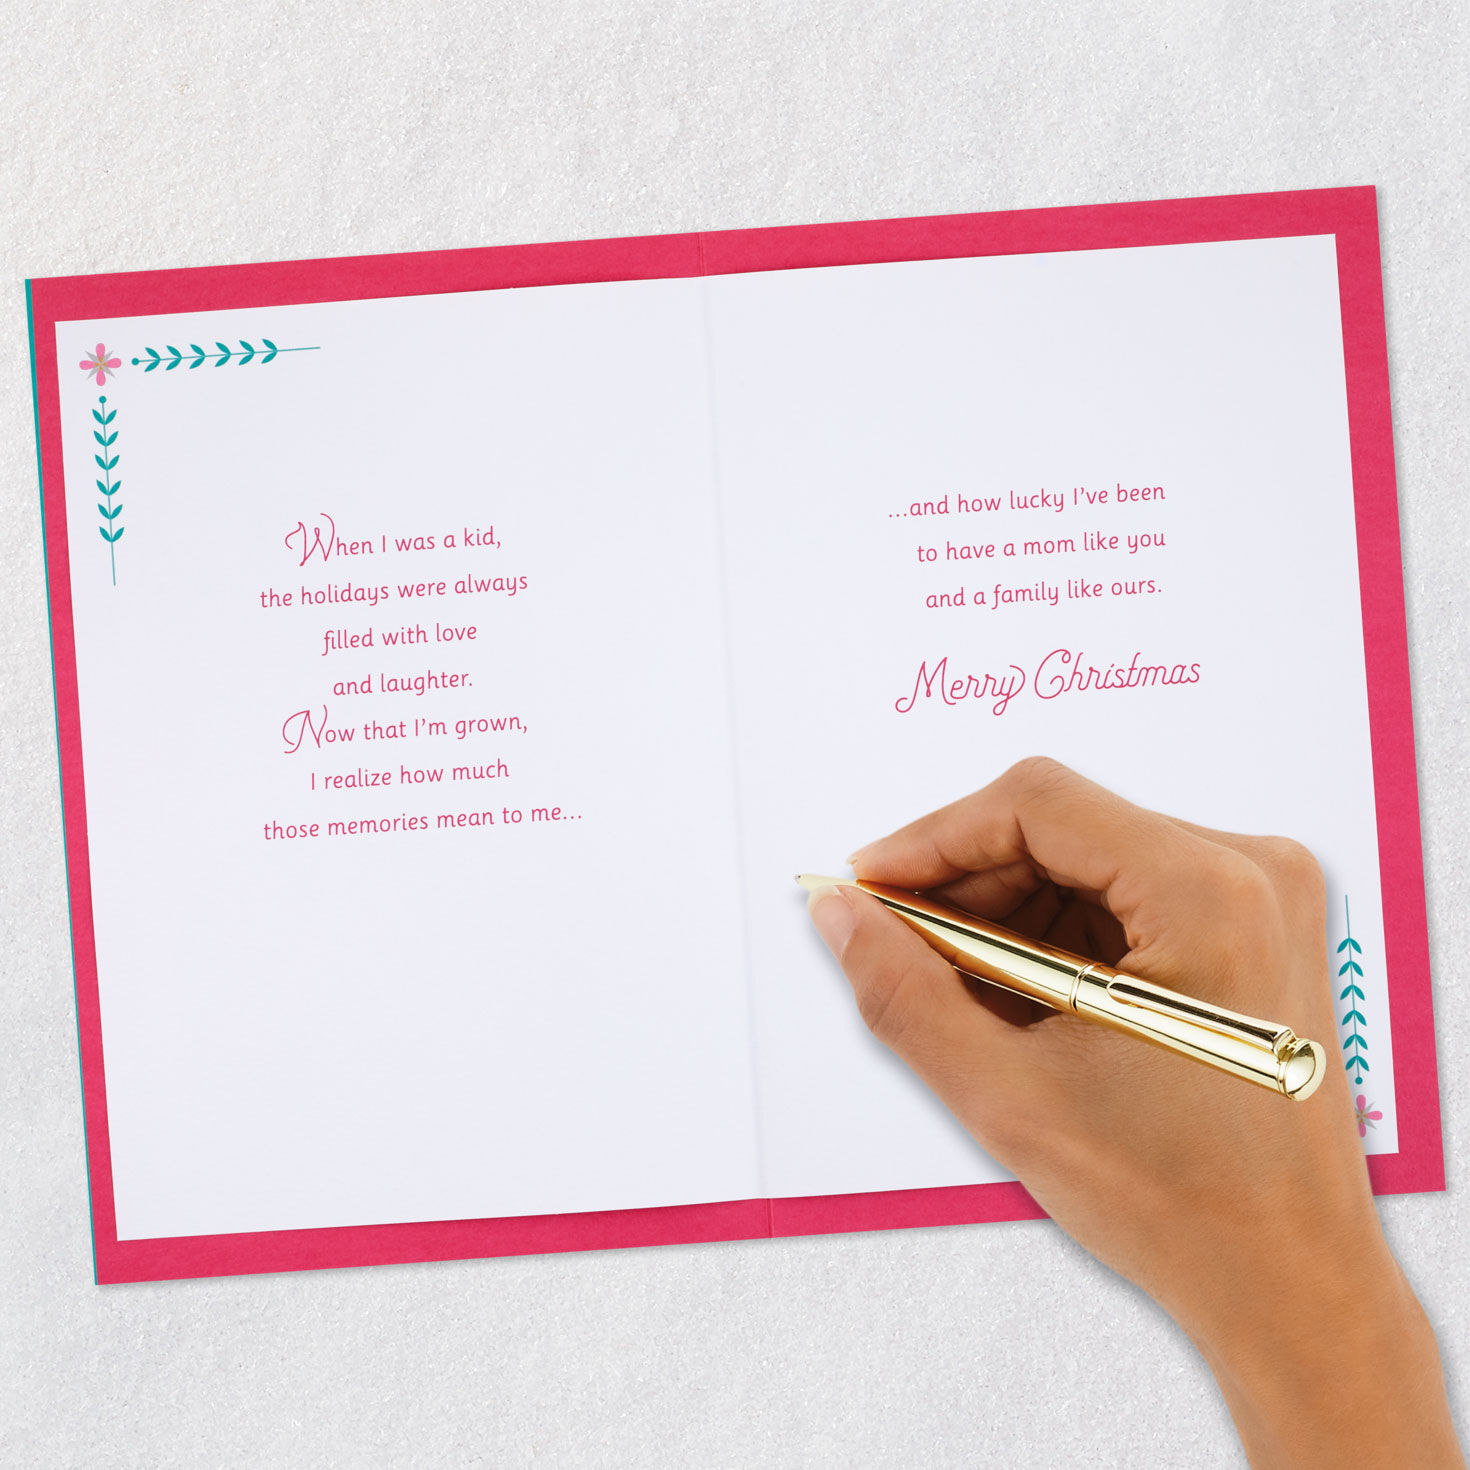 When I was a kid,
the holidays were always
filled with love
and laughter.
Now that I'm grown,
I realize how much
those memories mean to me...
...and how lucky I've been
to have a mom like you
and a family like ours.
Merry Christmas